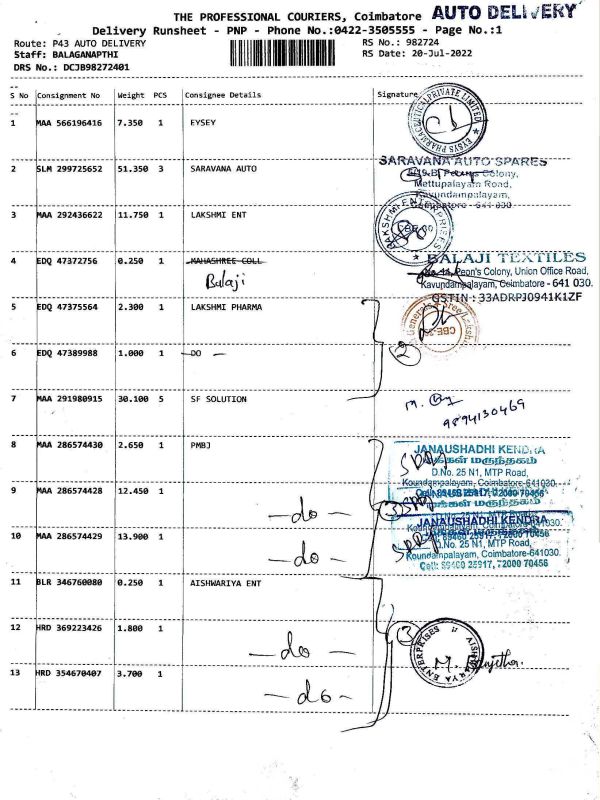 THE PROFESSIONAL COURIERS, Coimbatore AUTO DELIVERY
Delivery Runsheet - PNP - Phone No.:0422-3505555 - Page No.:1
Route: P43 AUTO DELIVERY RS No.: 982724
Staff: BALAGANAPTHI RS Date: 20-Jul-2022
DRS No.: DCJB98272401
S No Consignment No Weight PCS Consignee Details Signature
1 MAA 566196416 7.350 1 EYSEY
2 SLM 299725652 51.350 3 SARAVANA AUTO
SARAVANA AUTO SPARES
Colony,
Mettupalayam Road,
Kavundampalayam,
Coimbatore - 641 030.
3 MAA 292436622 11.750 1 LAKSHMI ENT
LAKSHMI ENTERPRISES
4 EDQ 47372756 0.250 1 MAHASHREE COLL
Balaji
BALAJI TEXTILES
Peon's Colony, Union Office Road,
Kavundampalayam, Coimbatore - 641 030.
GSTIN : 33ADRPJ0941K1ZF
5 EDQ 47375564 2.300 1 LAKSHMI PHARMA
2
6 EDQ 47389988 1.000 1 -DO -
7 MAA 291980915 30.100 5 SF SOLUTION
9894130469
8 MAA 286574430 2.650 1 PMBJ
JANAUSHADHI KENDRA
மக்கள் மருந்தகம்
D.No. 25 N1, MTP Road,
Koundampalayam, Coimbatore-641030.
9 MAA 286574428 12.450 1
- do -
3
JANAUSHADHI KENDRA
10 MAA 286574429 13.900 1
- do -
D.No. 25 N1, MTP Road,
Koundampalayam, Coimbatore-641030.
Cell: 89460 25917, 72000 70456
11 BLR 346760080 0.250 1 AISHWARIYA ENT
12 HRD 369223426 1.800 1
- do -
3
13 HRD 354670407 3.700 1
- do -